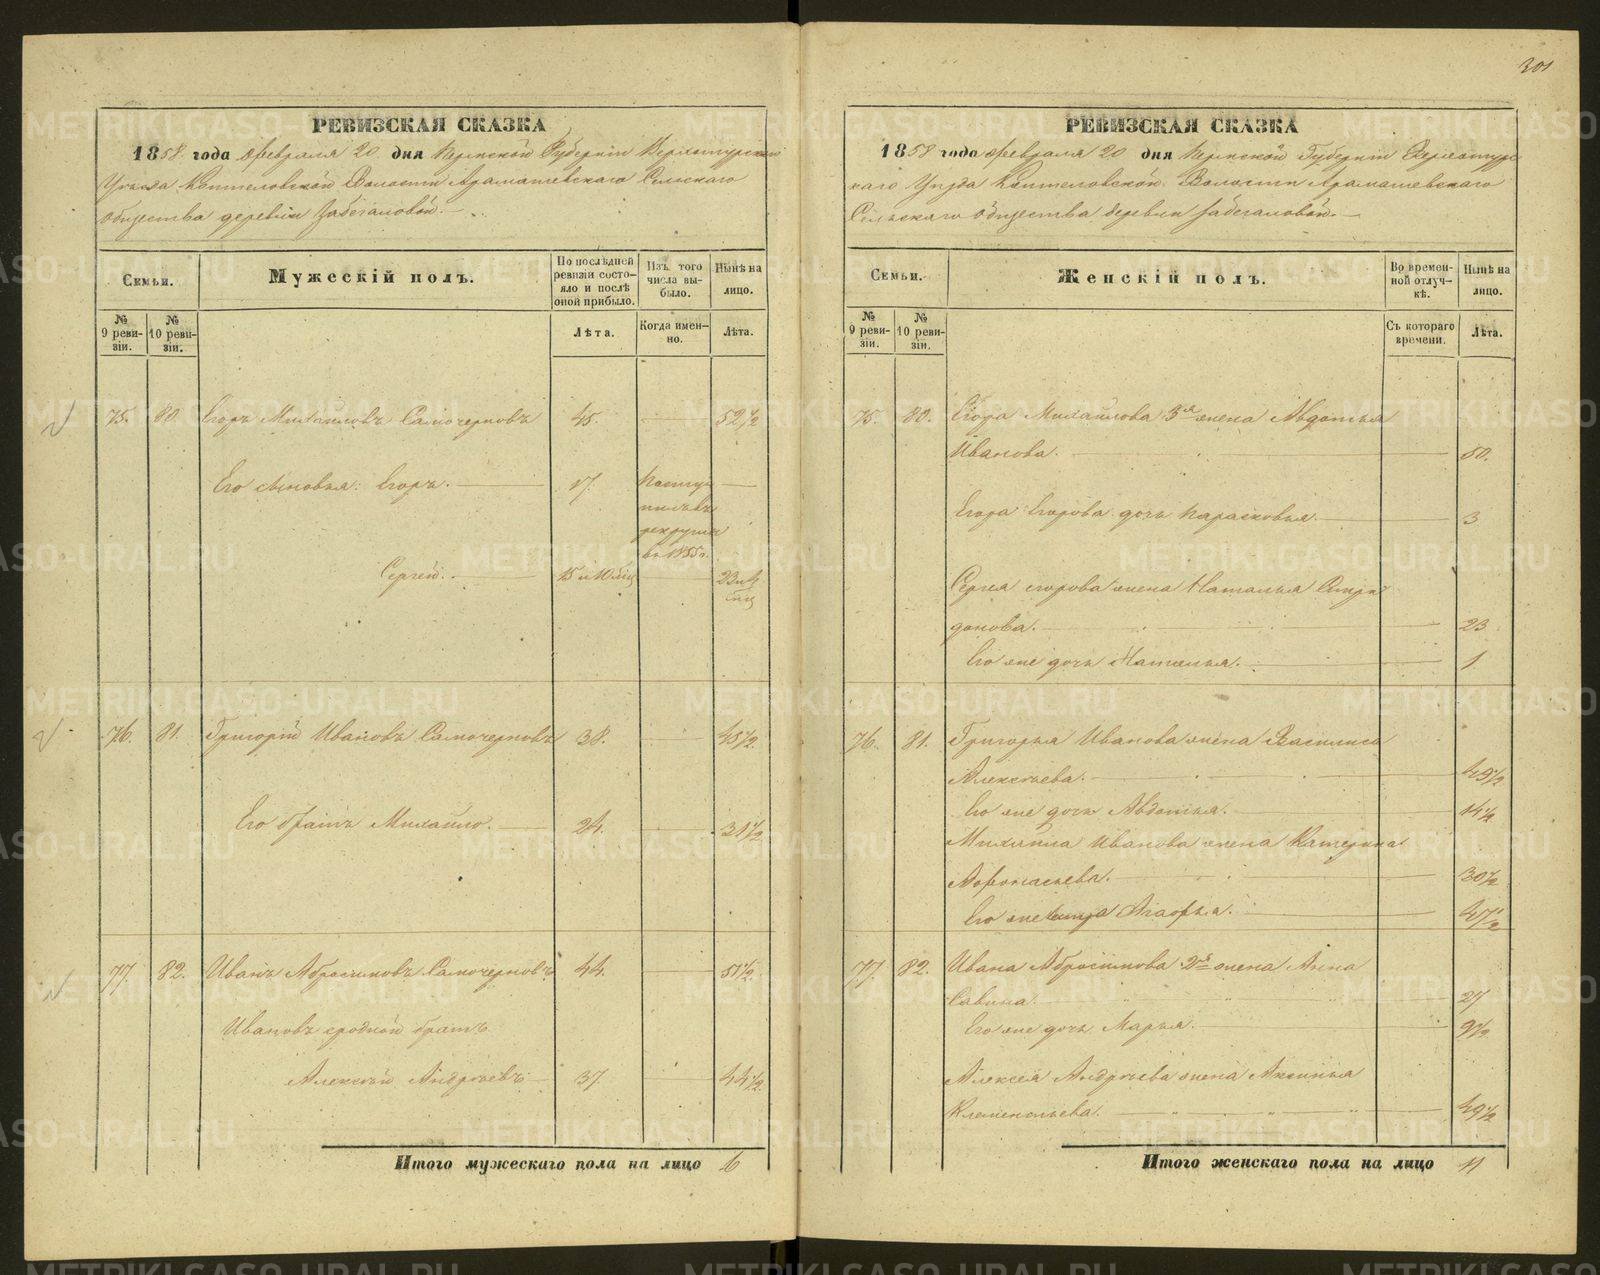 301
РЕВИЗСКАЯ СКАЗКА
1858 года февраля 20 дня Пермской Губернiи Верхотурскаго
Уѣзда Коптеловской Волости Арамашевскаго Сельскаго
Общества деревни Забегаловой.
Семьи.
Мужескiй полъ.
По послѣдней ревизiи состояло и послѣ оной прибыло.
Изъ того числа выбыло.
Нынѣ на лицо.
№ 9 ревизiи.
№ 10 ревизiи.
Лѣта.
Когда именно.
Лѣта.
75. 80. Егоръ Михайловъ Самочерновъ 45. 52½
Его сыновья: Егоръ. 17. Поступилъ въ рекруты въ 1855 г.
Сергей. 15 и 10 мѣц 23 и 4 мѣц
76. 81. Григорiй Ивановъ Самочерновъ 38. 45½
Его братъ Михайло. 24. 31½
77. 82. Иванъ Абросимовъ Самочерновъ 44. 51½
Ивановъ сродной братъ
Алексѣй Андрѣевъ 37 44½
Итого мужескаго пола на лицо 6
РЕВИЗСКАЯ СКАЗКА
1858 года февраля 20 дня Пермской Губернiи Верхотурс
каго Уѣзда Коптеловской Волости Арамашевскаго
Сельскаго Общества деревни Забегаловой.
Семьи.
Женскiй полъ.
Во временной отлучкѣ.
Нынѣ на лицо.
№ 9 ревизiи.
№ 10 ревизiи.
Съ котораго времени.
Лѣта.
75. 80. Егора Михайлова 3я жена Авдотья
Иванова. 50.
Егора Егорова дочь Парасковья. 3
Сергея Егорова жена Наталья Спири
донова. 23
Его же дочь Наталья. 1
76. 81. Григорья Иванова жена Василиса
Алексѣева. 49½
Его же дочь Авдотья. 14½
Михайла Иванова жена Катерина
Афонасьева. 30½
Его же сестра Агафья. 47½
77. 82. Ивана Абросимова 2я жена Анна
Савина. 27
Его же дочь Марья. 9½
Алексея Андрѣева жена Аксинья
Клементьева. 49½
Итого женскаго пола на лицо 11
METRIKI.GASO-URAL.RU